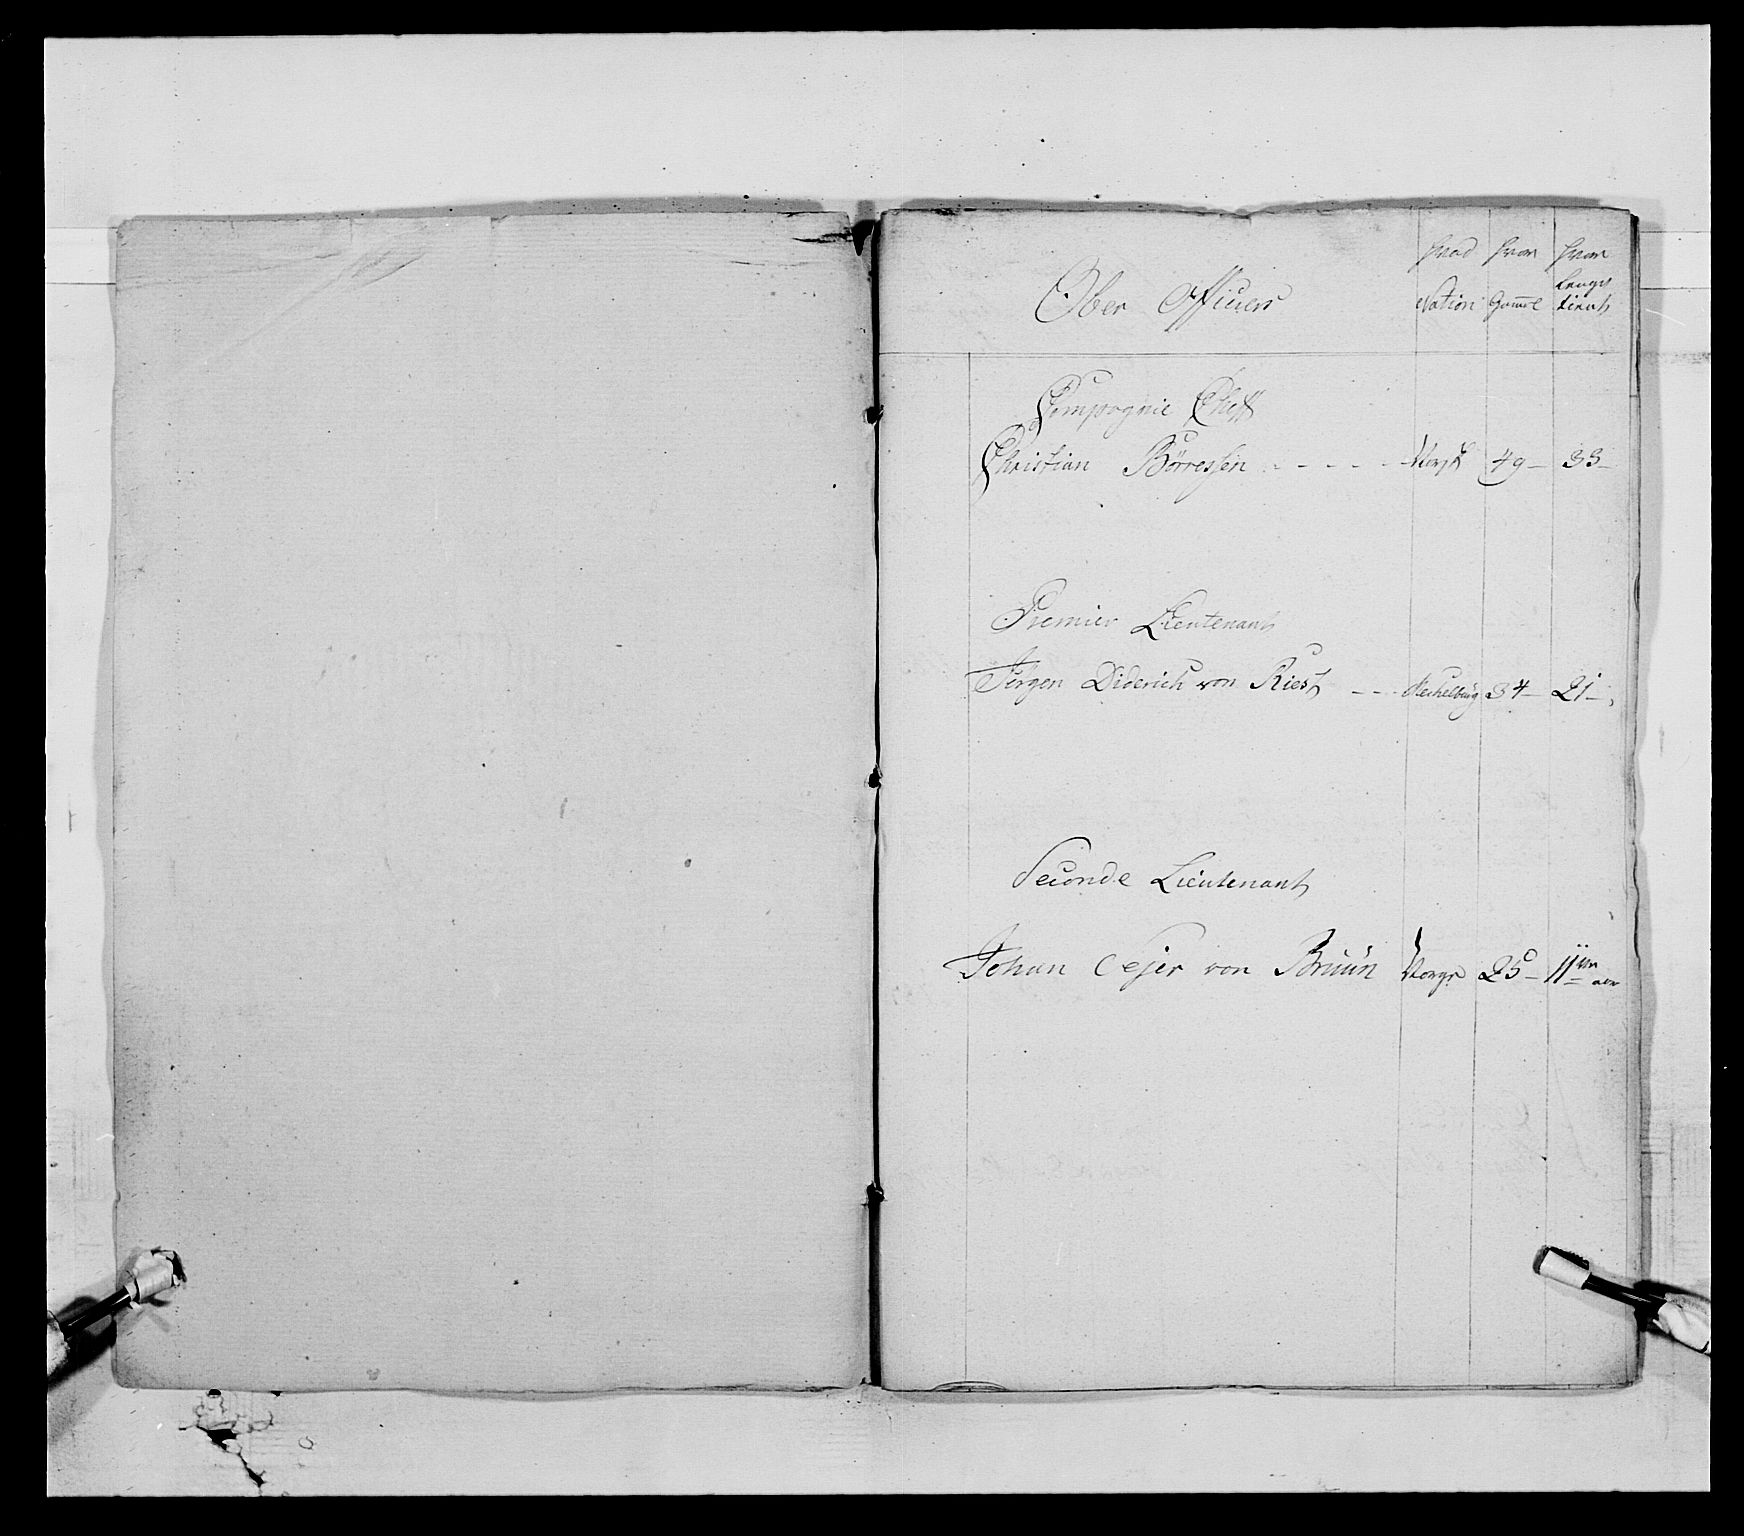 Ober Officiers
hvad Nation
hvor Gammel
hvor lenge tient
Compagnie Cheff
Christian Börressen - - - - - Norsk 49 - 33 -
Premier Lieutenant
Jörgen Diderich von Riest - - - Mechelburg 34 - 21 -
Seconde Lieutenant
Johan Vejer von Bruun Norge 25 - 11